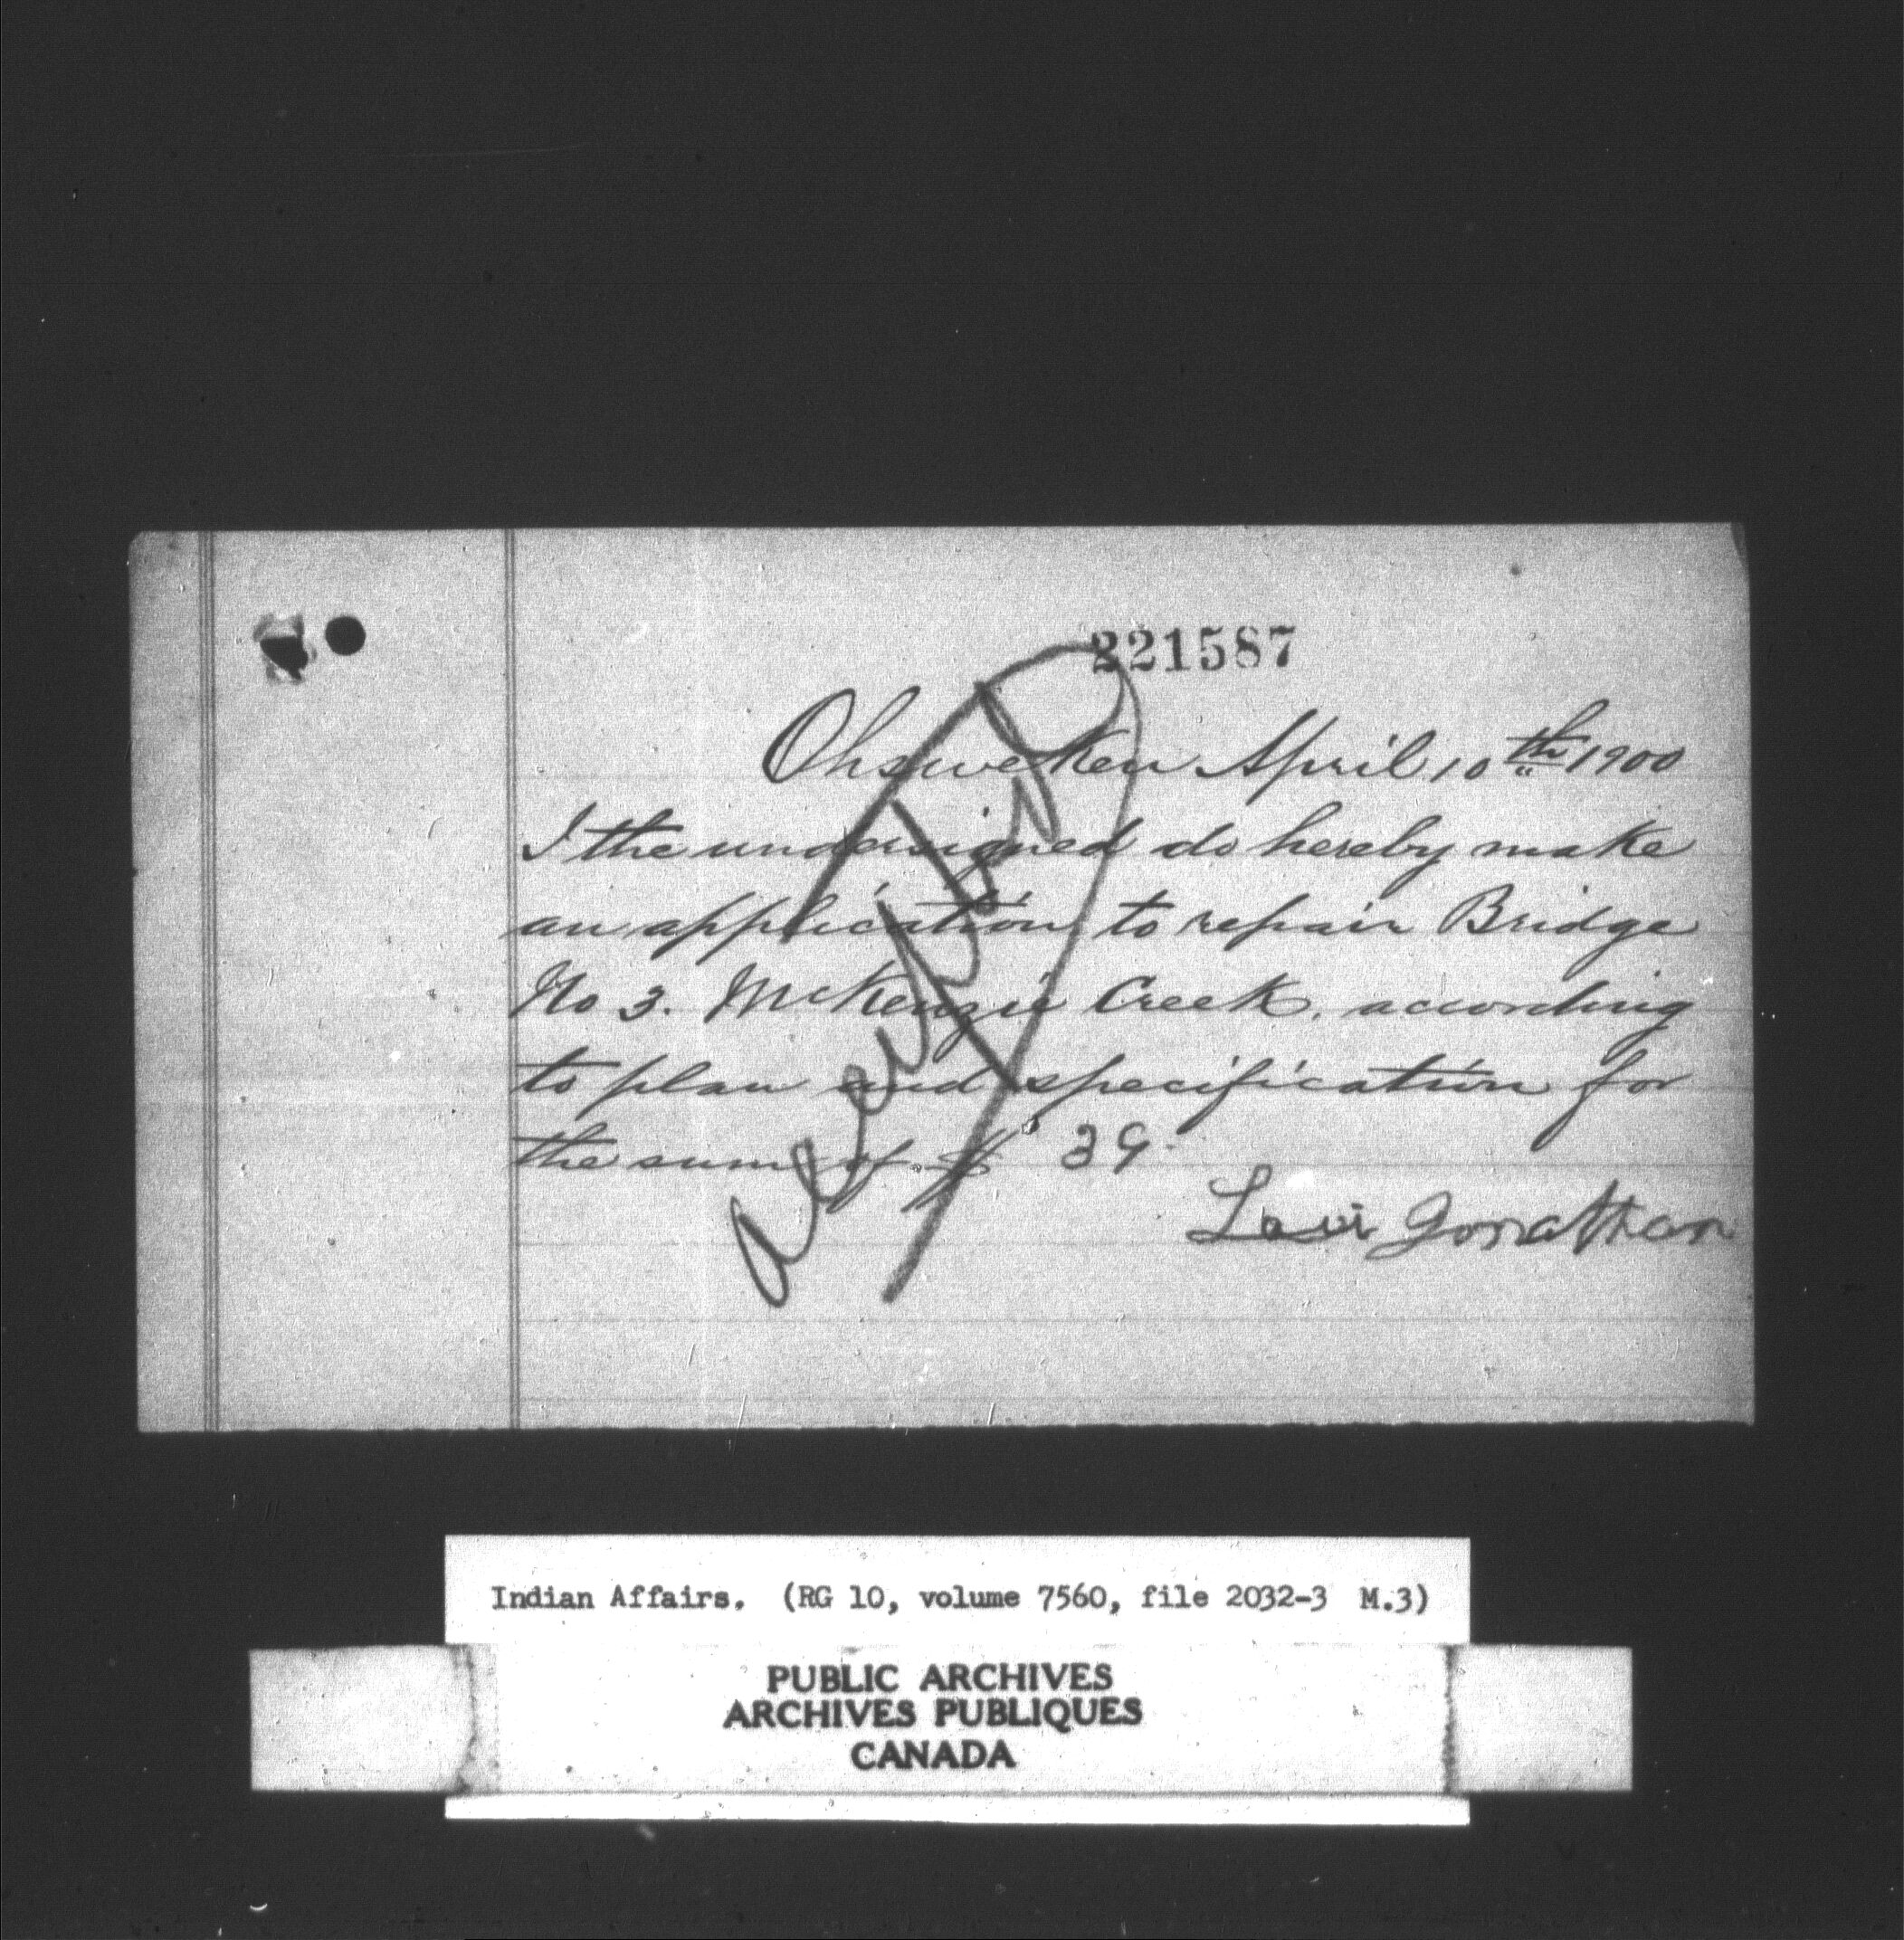 221587
Ohsweken April 10th 1900
I the undersigned do hereby make
an application to repair Bridge
No 3. McKenzie Creek, according
to plan and specification for
the sum of $ 39.
Levi Jonathan
accepted
Indian Affairs. (RG 10, volume 7560, file 2032-3 M.3)
PUBLIC ARCHIVES
ARCHIVES PUBLIQUES
CANADA